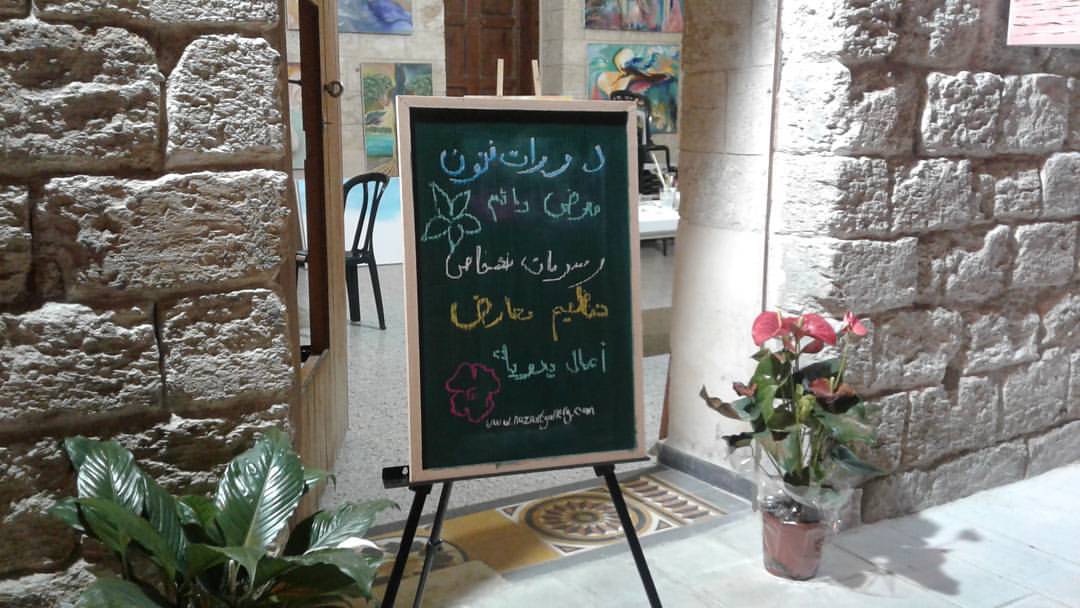 دورات فنون
معرض دائم
رسومات شخصيات
تنظيم معارض
أعمال يدوية
www.nazartgallery.com